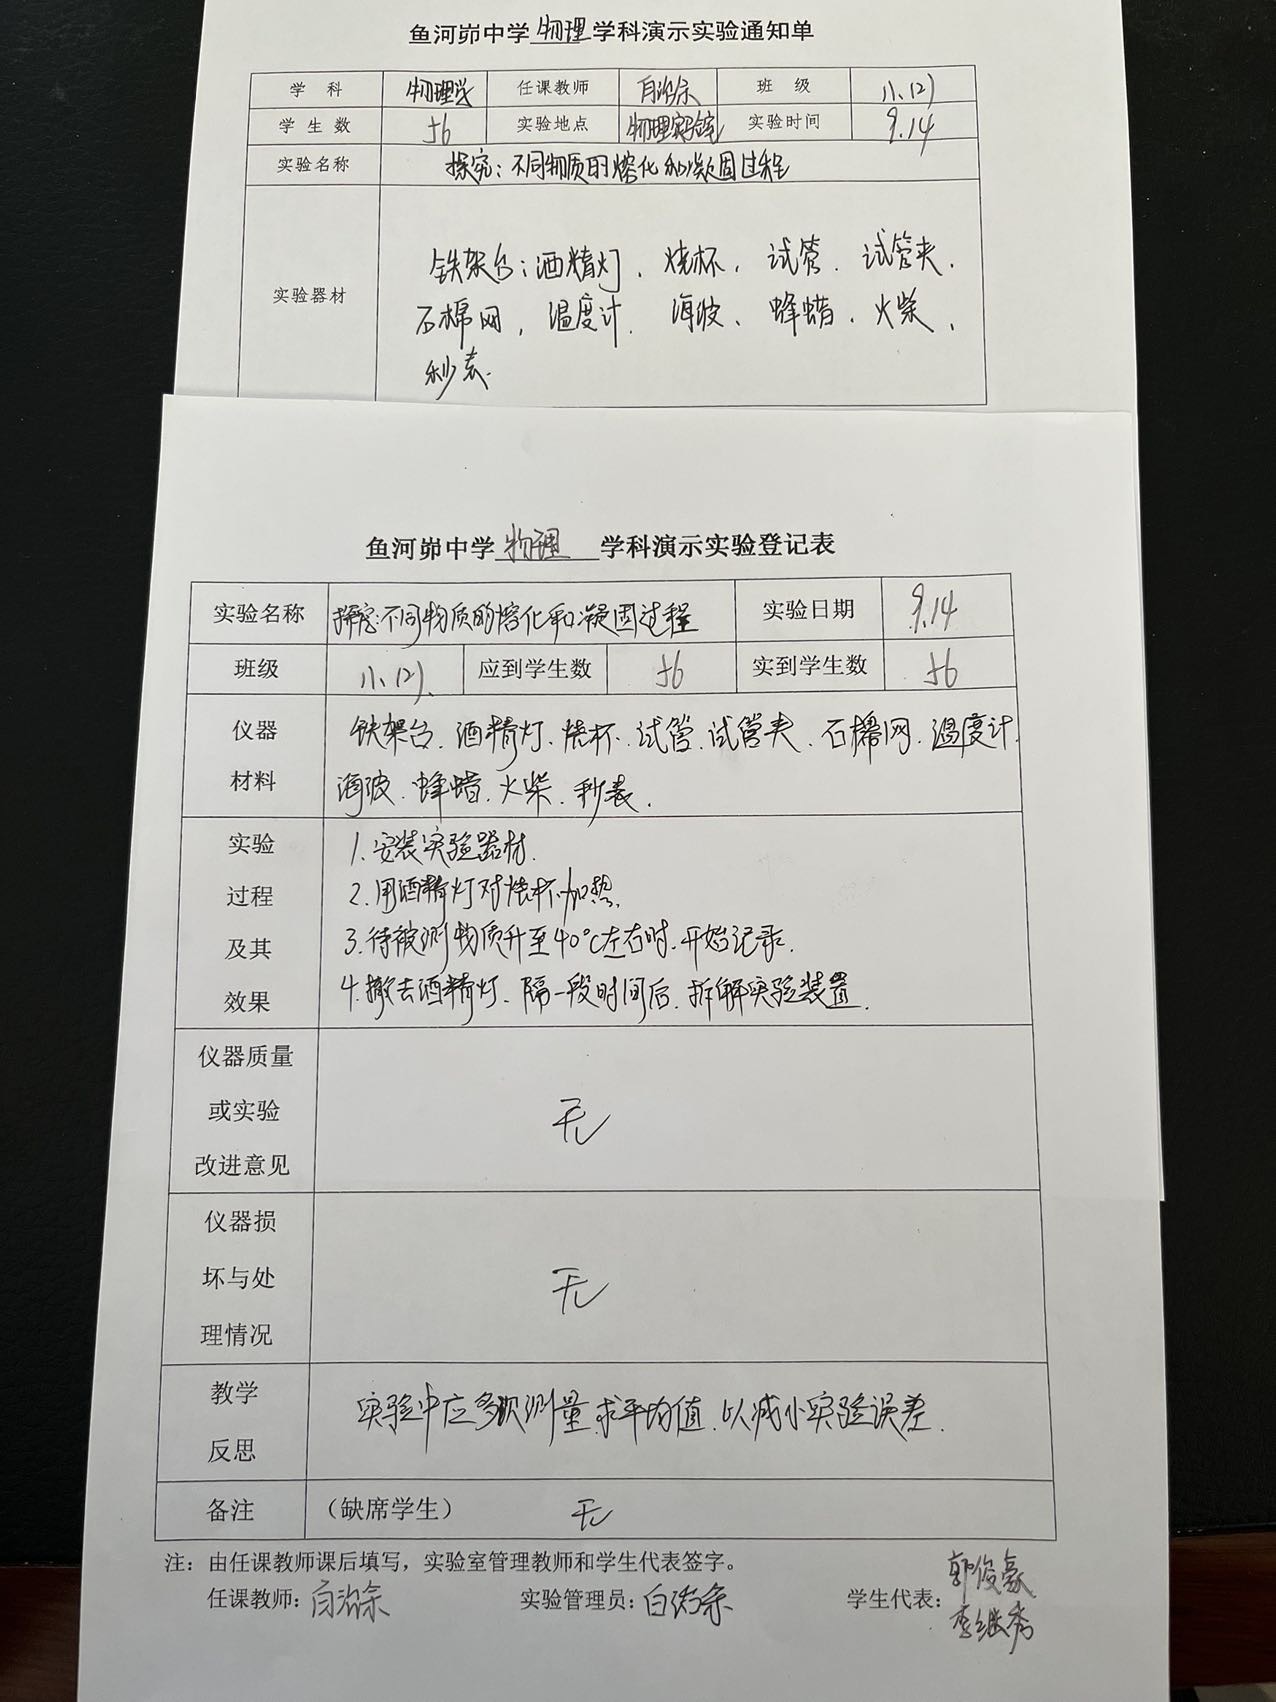 鱼河峁中学 物理 学科演示实验通知单
学 科 物理学 任课教师 白治余 班 级 八.(2)
学 生 数 56 实验地点 物理实验室 实验时间 9.14
实验名称 探究:不同物质的熔化和凝固过程
实验器材
铁架台;酒精灯、烧杯、试管、试管夹、
石棉网、温度计、海波、蜂蜡、火柴、
秒表.
鱼河峁中学 物理 学科演示实验登记表
实验名称 探究:不同物质的熔化和凝固过程 实验日期 9.14
班级 八.(2). 应到学生数 56 实到学生数 56
仪器 铁架台、酒精灯、烧杯、试管、试管夹、石棉网、温度计、
材料 海波、蜂蜡、火柴、秒表.
实验 1.安装实验器材.
过程 2.用酒精灯对烧杯加热.
及其 3.待被测物质升至40℃左右时.开始记录.
效果 4.撤去酒精灯、隔一段时间后.拆解实验装置.
仪器质量
或实验 无
改进意见
仪器损
坏与处 无
理情况
教学 实验中应多次测量.求平均值.以减小实验误差.
反思
备注 (缺席学生) 无
注:由任课教师课后填写,实验室管理教师和学生代表签字。
任课教师:白治余 实验管理员:白治余 学生代表:郭俊豪
李继秀